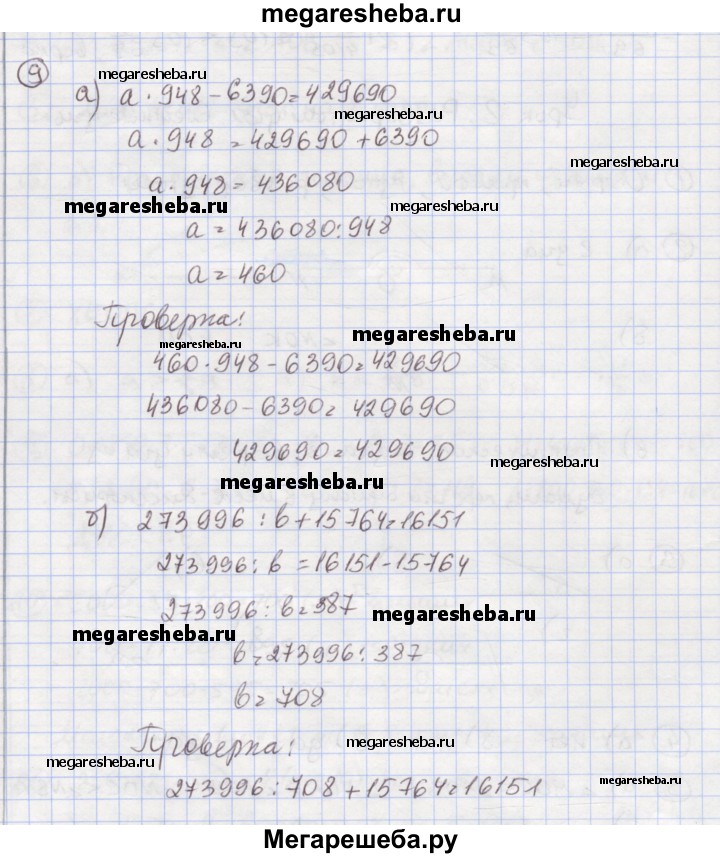 megaresheba.ru
9
megaresheba.ru
а) a · 948 - 6390 = 429690
megaresheba.ru
a · 948 = 429690 + 6390
megaresheba.ru
a · 948 = 436080
megaresheba.ru
megaresheba.ru
a = 436080 : 948
a = 460
Проверка:
megaresheba.ru
megaresheba.ru
460 · 948 - 6390 = 429690
436080 - 6390 = 429690
429690 = 429690
megaresheba.ru
megaresheba.ru
б) 273996 : b + 15764 = 16151
273996 : b = 16151 - 15764
273996 : b = 387
megaresheba.ru
megaresheba.ru
b = 273996 : 387
b = 708
Проверка:
megaresheba.ru
megaresheba.ru
273996 : 708 + 15764 = 16151
megaresheba.ru
Мегарешеба.ру